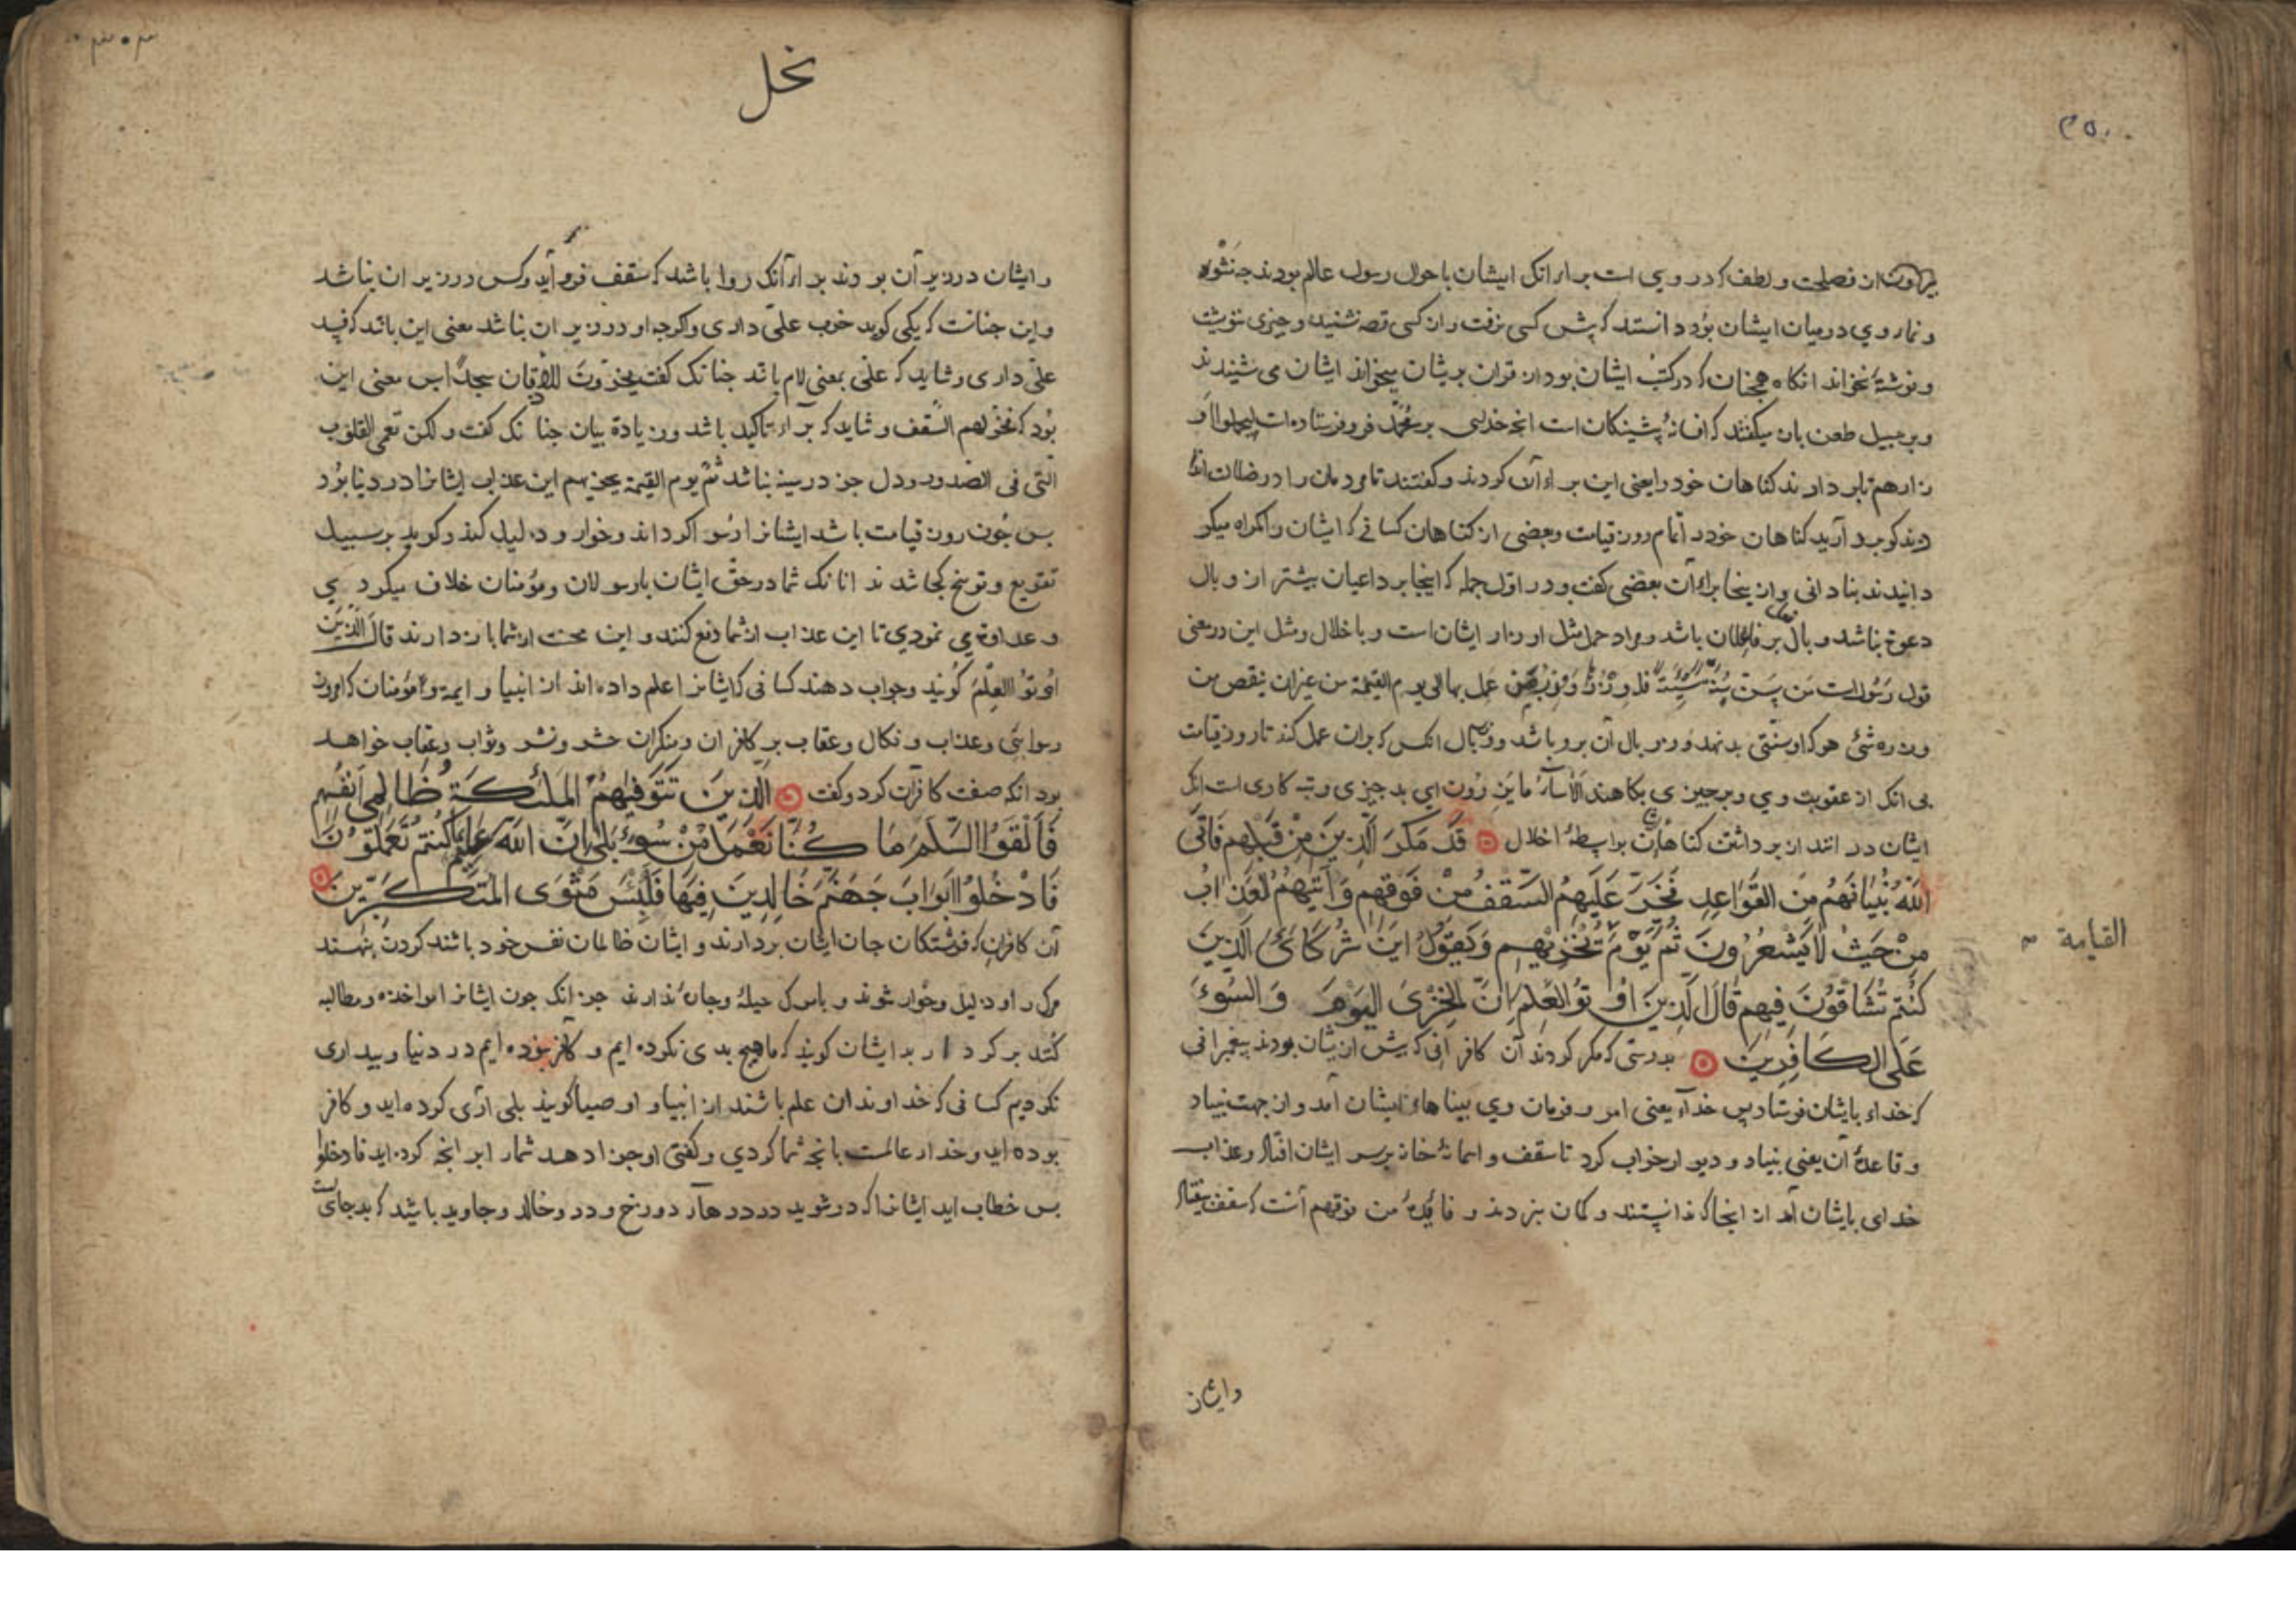 ۳۵۰
ان فصاحت و لطف که در وي است براء انک ایشان باحوال رسول عالم بودند
و نماء وي در میان ایشان بُود دانستند که پیش کسی نرفت و ان کسی قصه نشنید و چیزی ننوشت
و نوشتۀ نخواند انکاه همچنان که در کتب ایشان بود از قران بریشان میخواند ایشان می شنیدند
و بر سبیل طعن بان میکفتند که افسانۀ پیشینکان است انچه خدای بر محمد فرو فرستاده است لیحملوا
تا بردارند کناهان خود را یعنی این براء آن کردند و کفتند تا مردمان را در ضلالت
کو بردارید کناهان خود را تمام روز قیامت و بعضی از کناهان کسانی که ایشان را کمراه
بنادانی و از ینجا براء آن بعضی کفت و در اول جمله که اینجا بر داعیان بیشتر از وبال
دعوة نباشد و بال بر فاعلان باشد و مراد حمل مثل اوزار ایشان است و با خلال و مثل این در معنی
قول رسول است من سن سنة سیئة فله وزرها و وزر من عمل بها الی یوم القیمة من غیر ان ینقص من
وزره شئ هر که او سنّتی بد نهد وزر و بال آن برو باشد و وبال انکس که بران عمل کند تا روز قیامت
بی انک از عقوبت وي و بر چیزی بکاهند الا ساء ما یزرون ای بد چیزی و بد کاری است انک
ایشان در انند از برداشتن کناهان بواسطۀ اخلال قَدْ مَكَرَ الَّذِينَ مِنْ قَبْلِهِمْ فَأَتَى
اللَّهُ بُنْيَانَهُمْ مِنَ القَوَاعِدِ فَخَرَّ عَلَيْهِمُ السَّقْفُ مِنْ فَوْقِهِمْ وَأَتَيهُمُ العَذَابُ
مِنْ حَيْثُ لَا يَشْعُرُونَ ثُمَّ يَوْمَ يُخْزِيهِمْ وَيَقُولُ أَيْنَ شُرَكَائِىَ الَّذِينَ
القیامة
كُنْتُمْ تُشَاقُّونَ فِيهِمْ قَالَ الَّذِينَ أُوتُوا العِلْمَ إِنَّ الخِزْىَ اليَوْمَ وَالسُّوءَ
عَلَى الكَافِرِينَ بدرستی که مکر کردند آن کافرانی که پیش از یشان بودند پیغبرانی
که خداء بایشان فرستاد پس خداء یعنی امر و فرمان وي ببناهاء ایشان آمد و از جهت بنیاد
و قاعدۀ آن یعنی بنیاد و دیوار خراب کرد تا سقف و اسمانۀ خانه بر سر ایشان افتاد و عذاب
خدای بایشان آمد از انجا که ندانستند و کمان نبردند و فایدۀ من فوقهم آنست که سقف بیفتاد
وایشان
نحل
و ایشان در زیر آن بودند براء آنک روا باشد که سقف فرو آید و کس در زیر ان نباشد
و این چنانست که یکی کوید خرب علیّ داری و اکرچه او در زیر ان نباشد معنی این باشد که
علیّ داری و شاید که علی بمعنی لام باشد چنانک کفت یخرّون للاذقان سجدًا پس معنی این
بُود که فخرّ لهم السّقف و شاید که براء تاکید باشد و زیادة بیان چنانک کفت و لکن تعمی القلوب
التی فی الصدور و دل جز در سینه نباشد ثمّ یوم القیمة یخزیهم این عذاب ایشانرا در دنیا بُود
پس چُون روز قیامت باشد ایشانرا رسوا کرداند و خوار و ذلیل کند و کوید بر سبیل
تقریع و توبیخ کجا شدند انانک شما در حقّ ایشان با رسولان و مؤمنان خلاف میکردي
و عداوة می نمودي تا این عذاب از شما دفع کنند و این محنت از شما باز دارند قال الّذین
اُوتوُا العِلْمَ کویند و جواب دهند کسانی که ایشانرا علم داده اند از انبیا و ایمه و مؤمنان که امروز
رسوایی و عذاب و نکال و عقاب بر کافران و منکران حشر و نشر و ثواب و عقاب خواهد
بود انکه صفت کافران کرد و کفت الَّذِينَ تَتَوَفَّيهُمُ المَلٰئِكَةُ ظَالِمِى أَنْفُسِهِمْ
فَأَلْقَوُا السَّلَمَ مَا كُنَّا نَعْمَلُ مِنْ سُوءٍ بَلَى إِنَّ اللَّهَ عَلِيمٌ بِمَا كُنْتُمْ تَعْمَلُونَ
فَادْخُلُوا أَبْوَابَ جَهَنَّمَ خَالِدِينَ فِيهَا فَلَبِئْسَ مَثْوَى المُتَكَبِّرِينَ
آن کافران که فرشتکان جان ایشان بردارند و ایشان ظالمان نفس خود باشند کردن بنهند
مرک را و ذلیل و خوار شوند و باس ک حیلۀ و جاء ندارند جز انک چون ایشانرا مواخذه و مطالبه
کنند بر کردار بد ایشان کویند که ما هیچ بدی نکرده ایم و کافر نبوده ایم در دنیا و بیداری
نکردیم کسانی که خداوندان علم باشند از انبیا و اوصیا کویند بلی اری کرده اید و کافر
بوده اید و خداء عالمست بانچه شما کردي و کفتی او جزا دهد شمارا بر انچه کرده اید فادخلوا
پس خطاب اید ایشانرا که در شوید در درهاء دوزخ و درو خالد و جاوید باشید که بد جای است